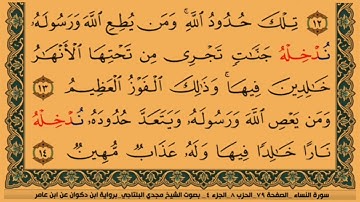 ١٢ تِلْكَ حُدُودُ ٱللَّهِ ۚ وَمَن يُطِعِ ٱللَّهَ وَرَسُولَهُۥ
نُدْخِلْهُ جَنَّـٰتٍ تَجْرِى مِن تَحْتِهَا ٱلْأَنْهَـٰرُ
خَـٰلِدِينَ فِيهَا ۚ وَذَٰلِكَ ٱلْفَوْزُ ٱلْعَظِيمُ ١٣
وَمَن يَعْصِ ٱللَّهَ وَرَسُولَهُۥ وَيَتَعَدَّ حُدُودَهُۥ نُدْخِلْهُ
نَارًا خَـٰلِدًا فِيهَا وَلَهُۥ عَذَابٌ مُّهِينٌ ١٤
سورة النساء _ الصفحة ٧٩ _ الحزب ٨ _ الجزء ٤ _ بصوت الشيخ مجدي البلتاجي _ برواية ابن ذكوان عن ابن عامر